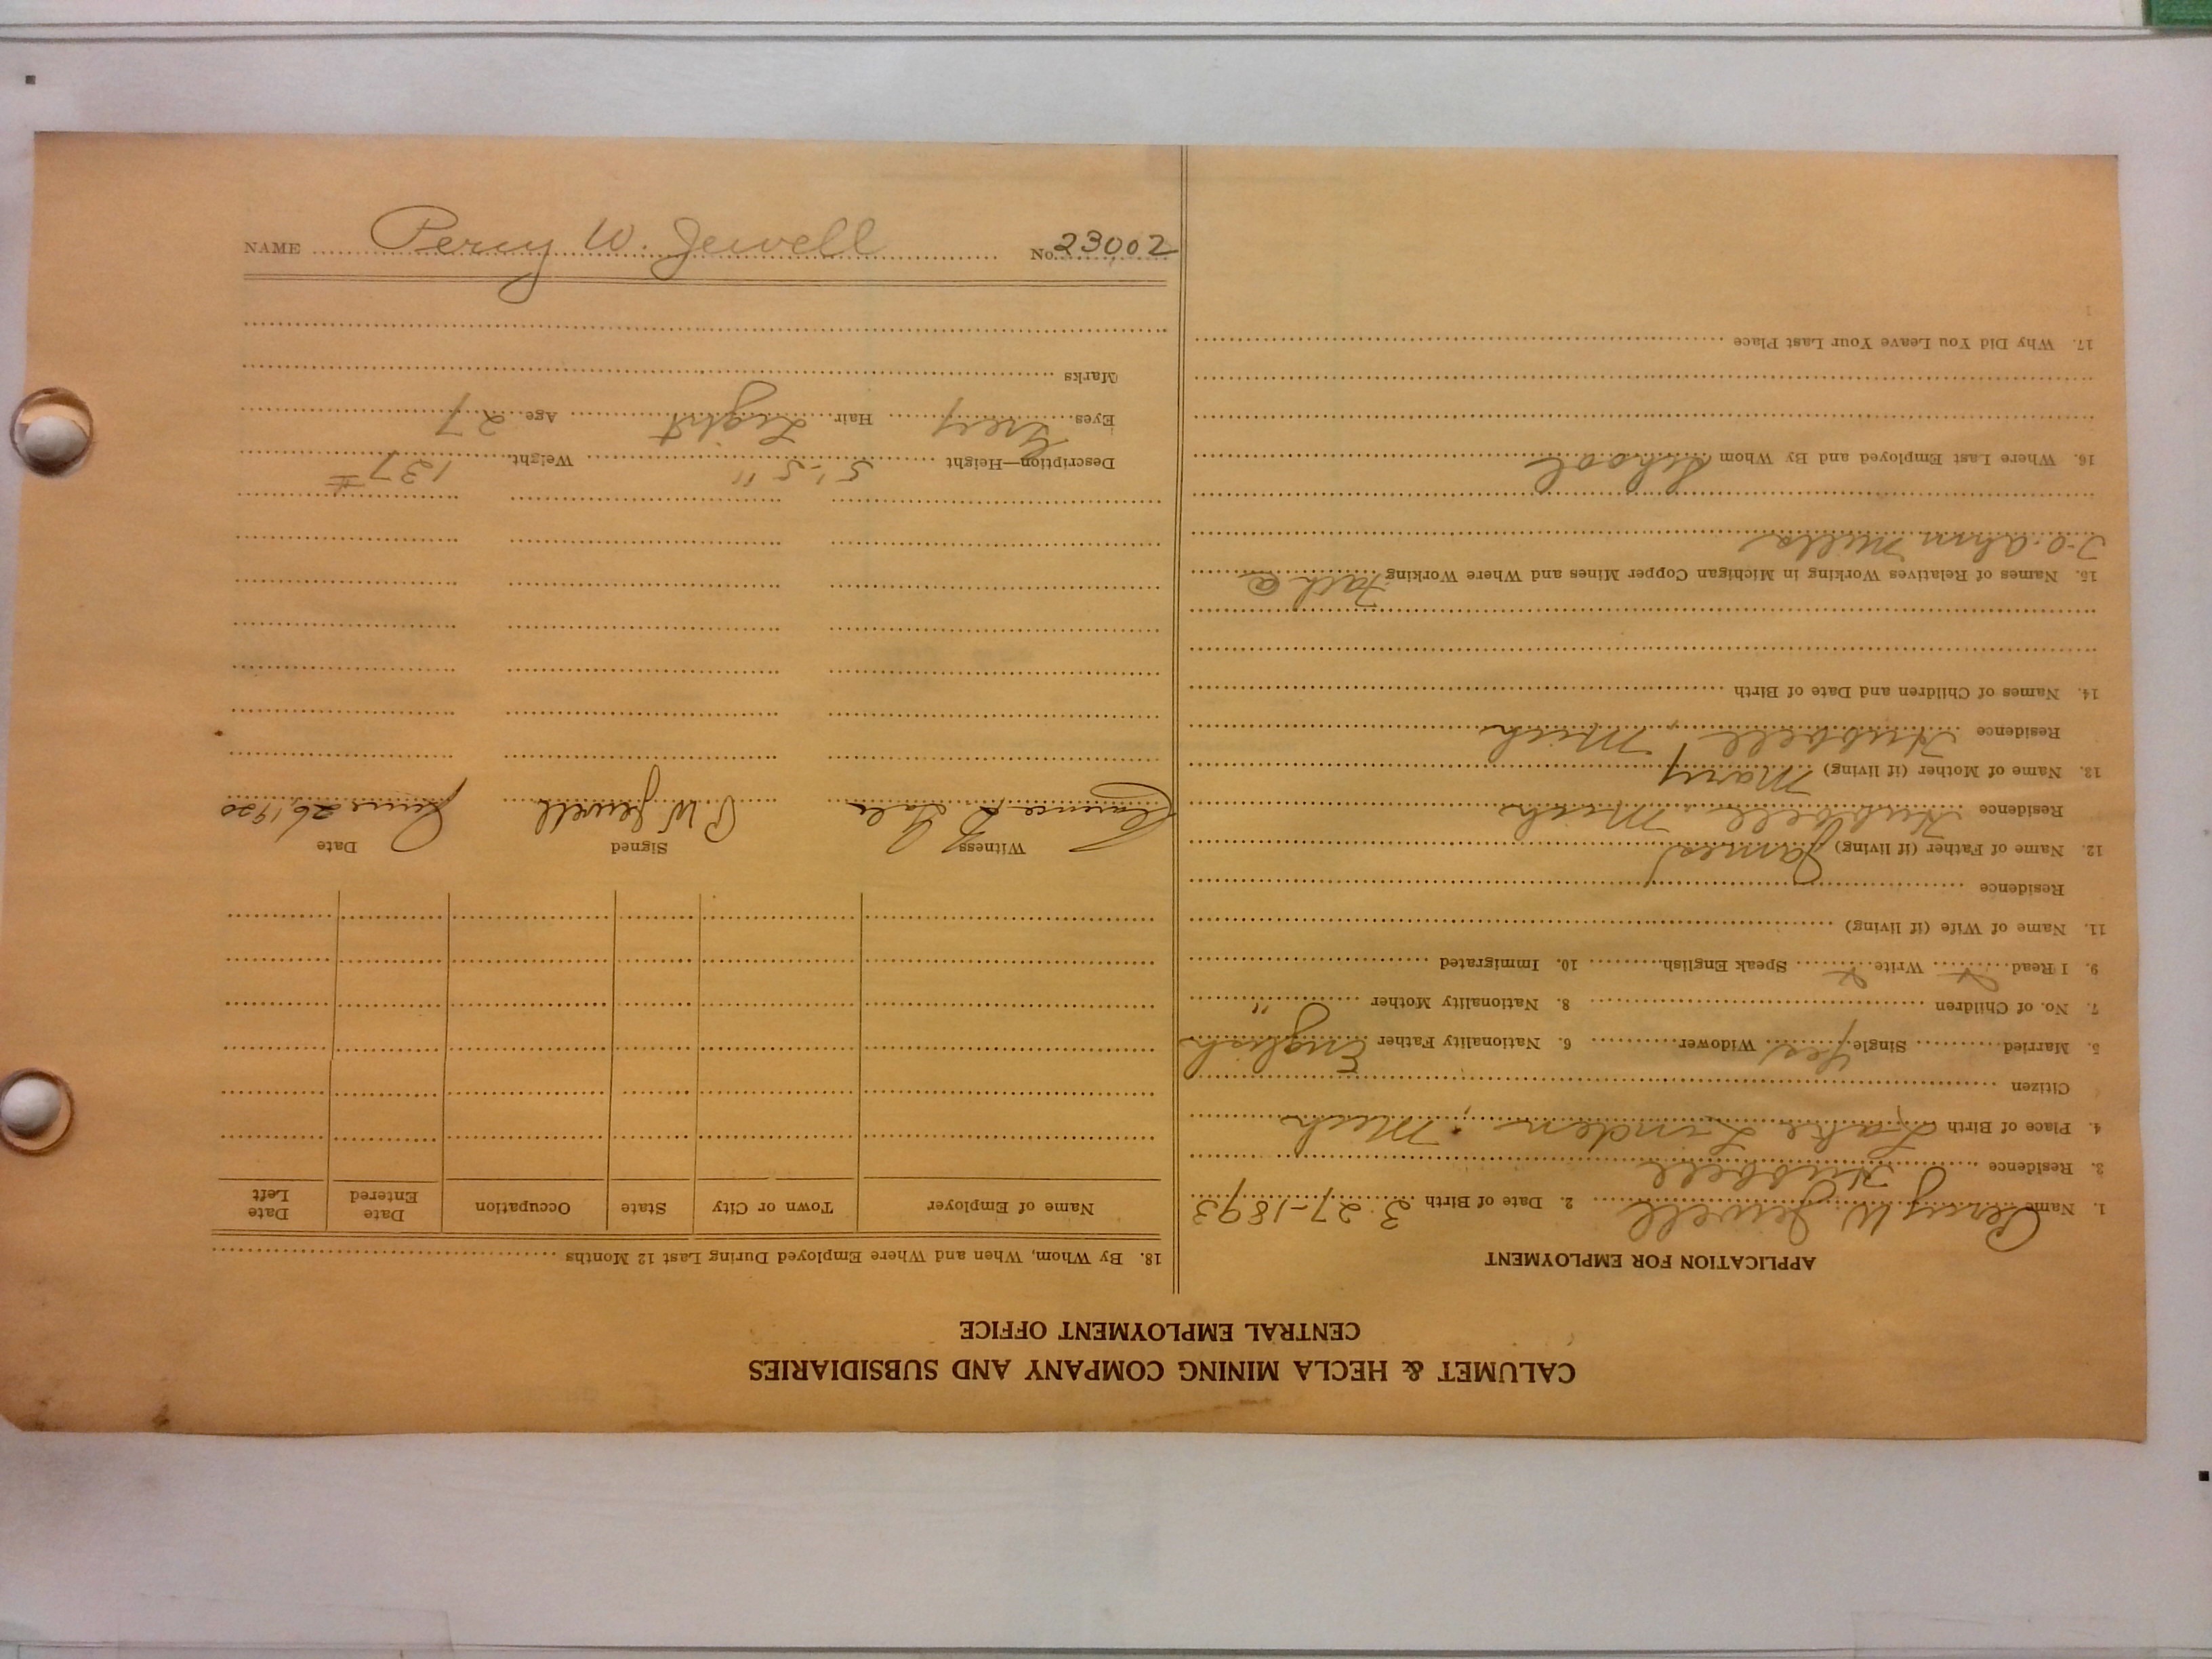 CALUMET & HECLA MINING COMPANY AND SUBSIDIARIES
CENTRAL EMPLOYMENT OFFICE
APPLICATION FOR EMPLOYMENT
1. Name Percy W Jewell 2. Date of Birth 3-27-1893
3. Residence Hubbell
4. Place of Birth Lake Linden, Mich
Citizen
5. Married Single Yes Widower 6. Nationality Father English
7. No. of Children 8. Nationality Mother "
9. I Read x Write x Speak English 10. Immigrated
11. Name of Wife (if living)
Residence
12. Name of Father (if living) James
Residence Hubbell, Mich
13. Name of Mother (if living) Mary
Residence Hubbell, Mich
14. Names of Children and Date of Birth
15. Names of Relatives Working in Michigan Copper Mines and Where Working Fath @
Mills
16. Where Last Employed and By Whom School
17. Why Did You Leave Your Last Place
18. By Whom, When and Where Employed During Last 12 Months
Name of Employer Town or City State Occupation Date Entered Date Left
Witness Signed Date
Clarence P W Jewell June 26, 1920
Description—Height 5'-5" Weight 137#
Eyes Grey Hair Light Age 27
Marks
NAME Percy W. Jewell No. 23002